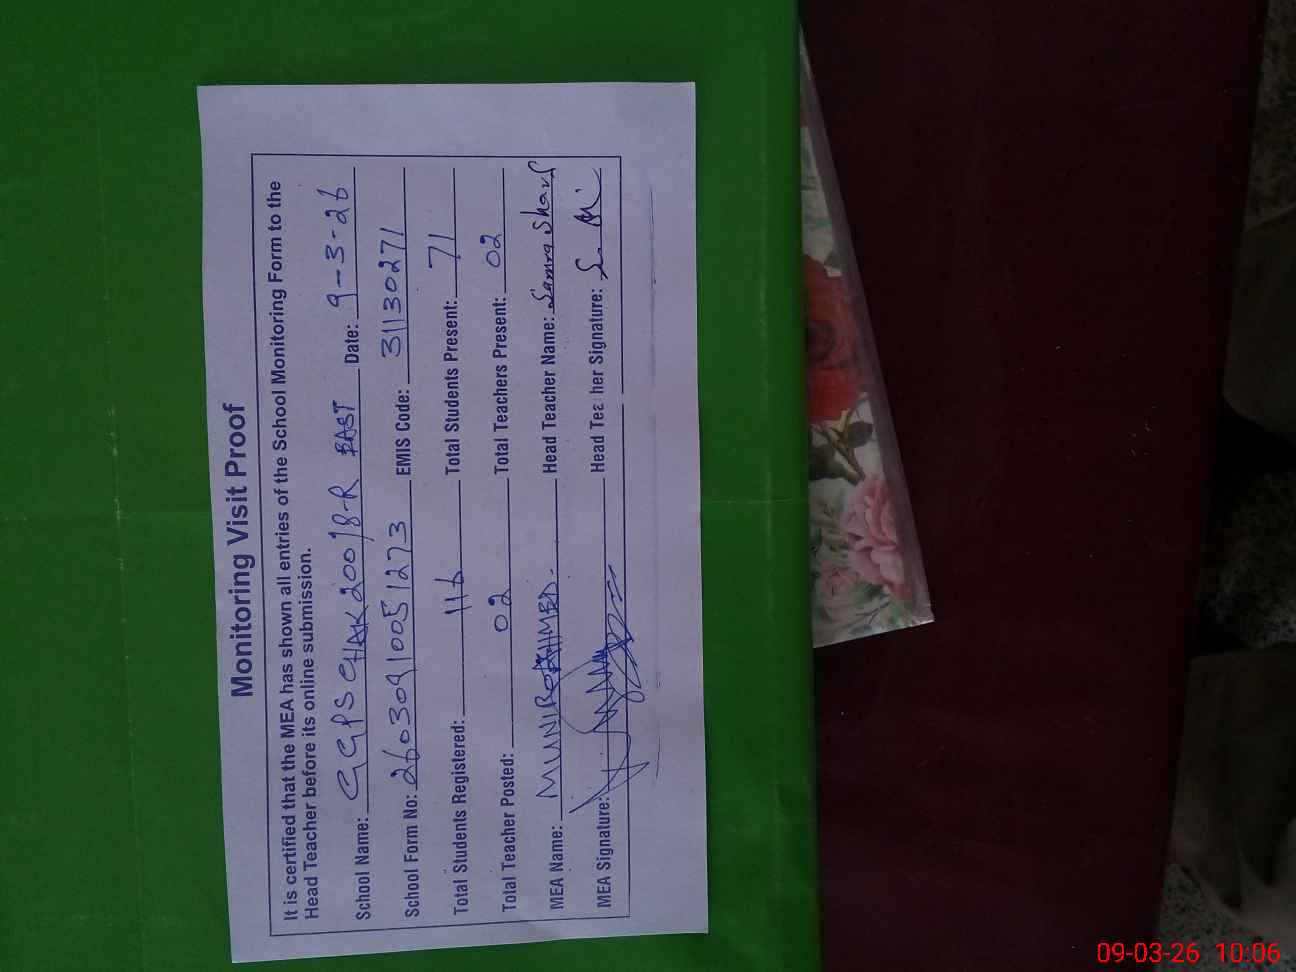 Monitoring Visit Proof
It is certified that the MEA has shown all entries of the School Monitoring Form to the
Head Teacher before its online submission.
School Name: GGPS CHAK 200/8-R EAST Date: 9-3-26
School Form No: 26030910051273 EMIS Code: 31130271
Total Students Registered: 116 Total Students Present: 71
Total Teacher Posted: 02 Total Teachers Present: 02
MEA Name: MUNIR AHMED. Head Teacher Name: Samra
MEA Signature: Head Teacher Signature:
09-03-26 10:06